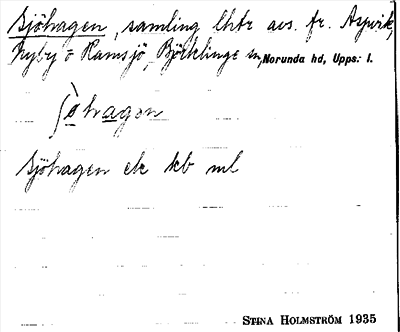 Sjöhagen, samling lhtr avs. fr. Aspvik,
Nyby o Ramsjö, Björklinge sn, Norunda hd, Upps: l.
ʃø̀hagen
Sjöhagen ek kb ml
STINA HOLMSTRÖM 1935